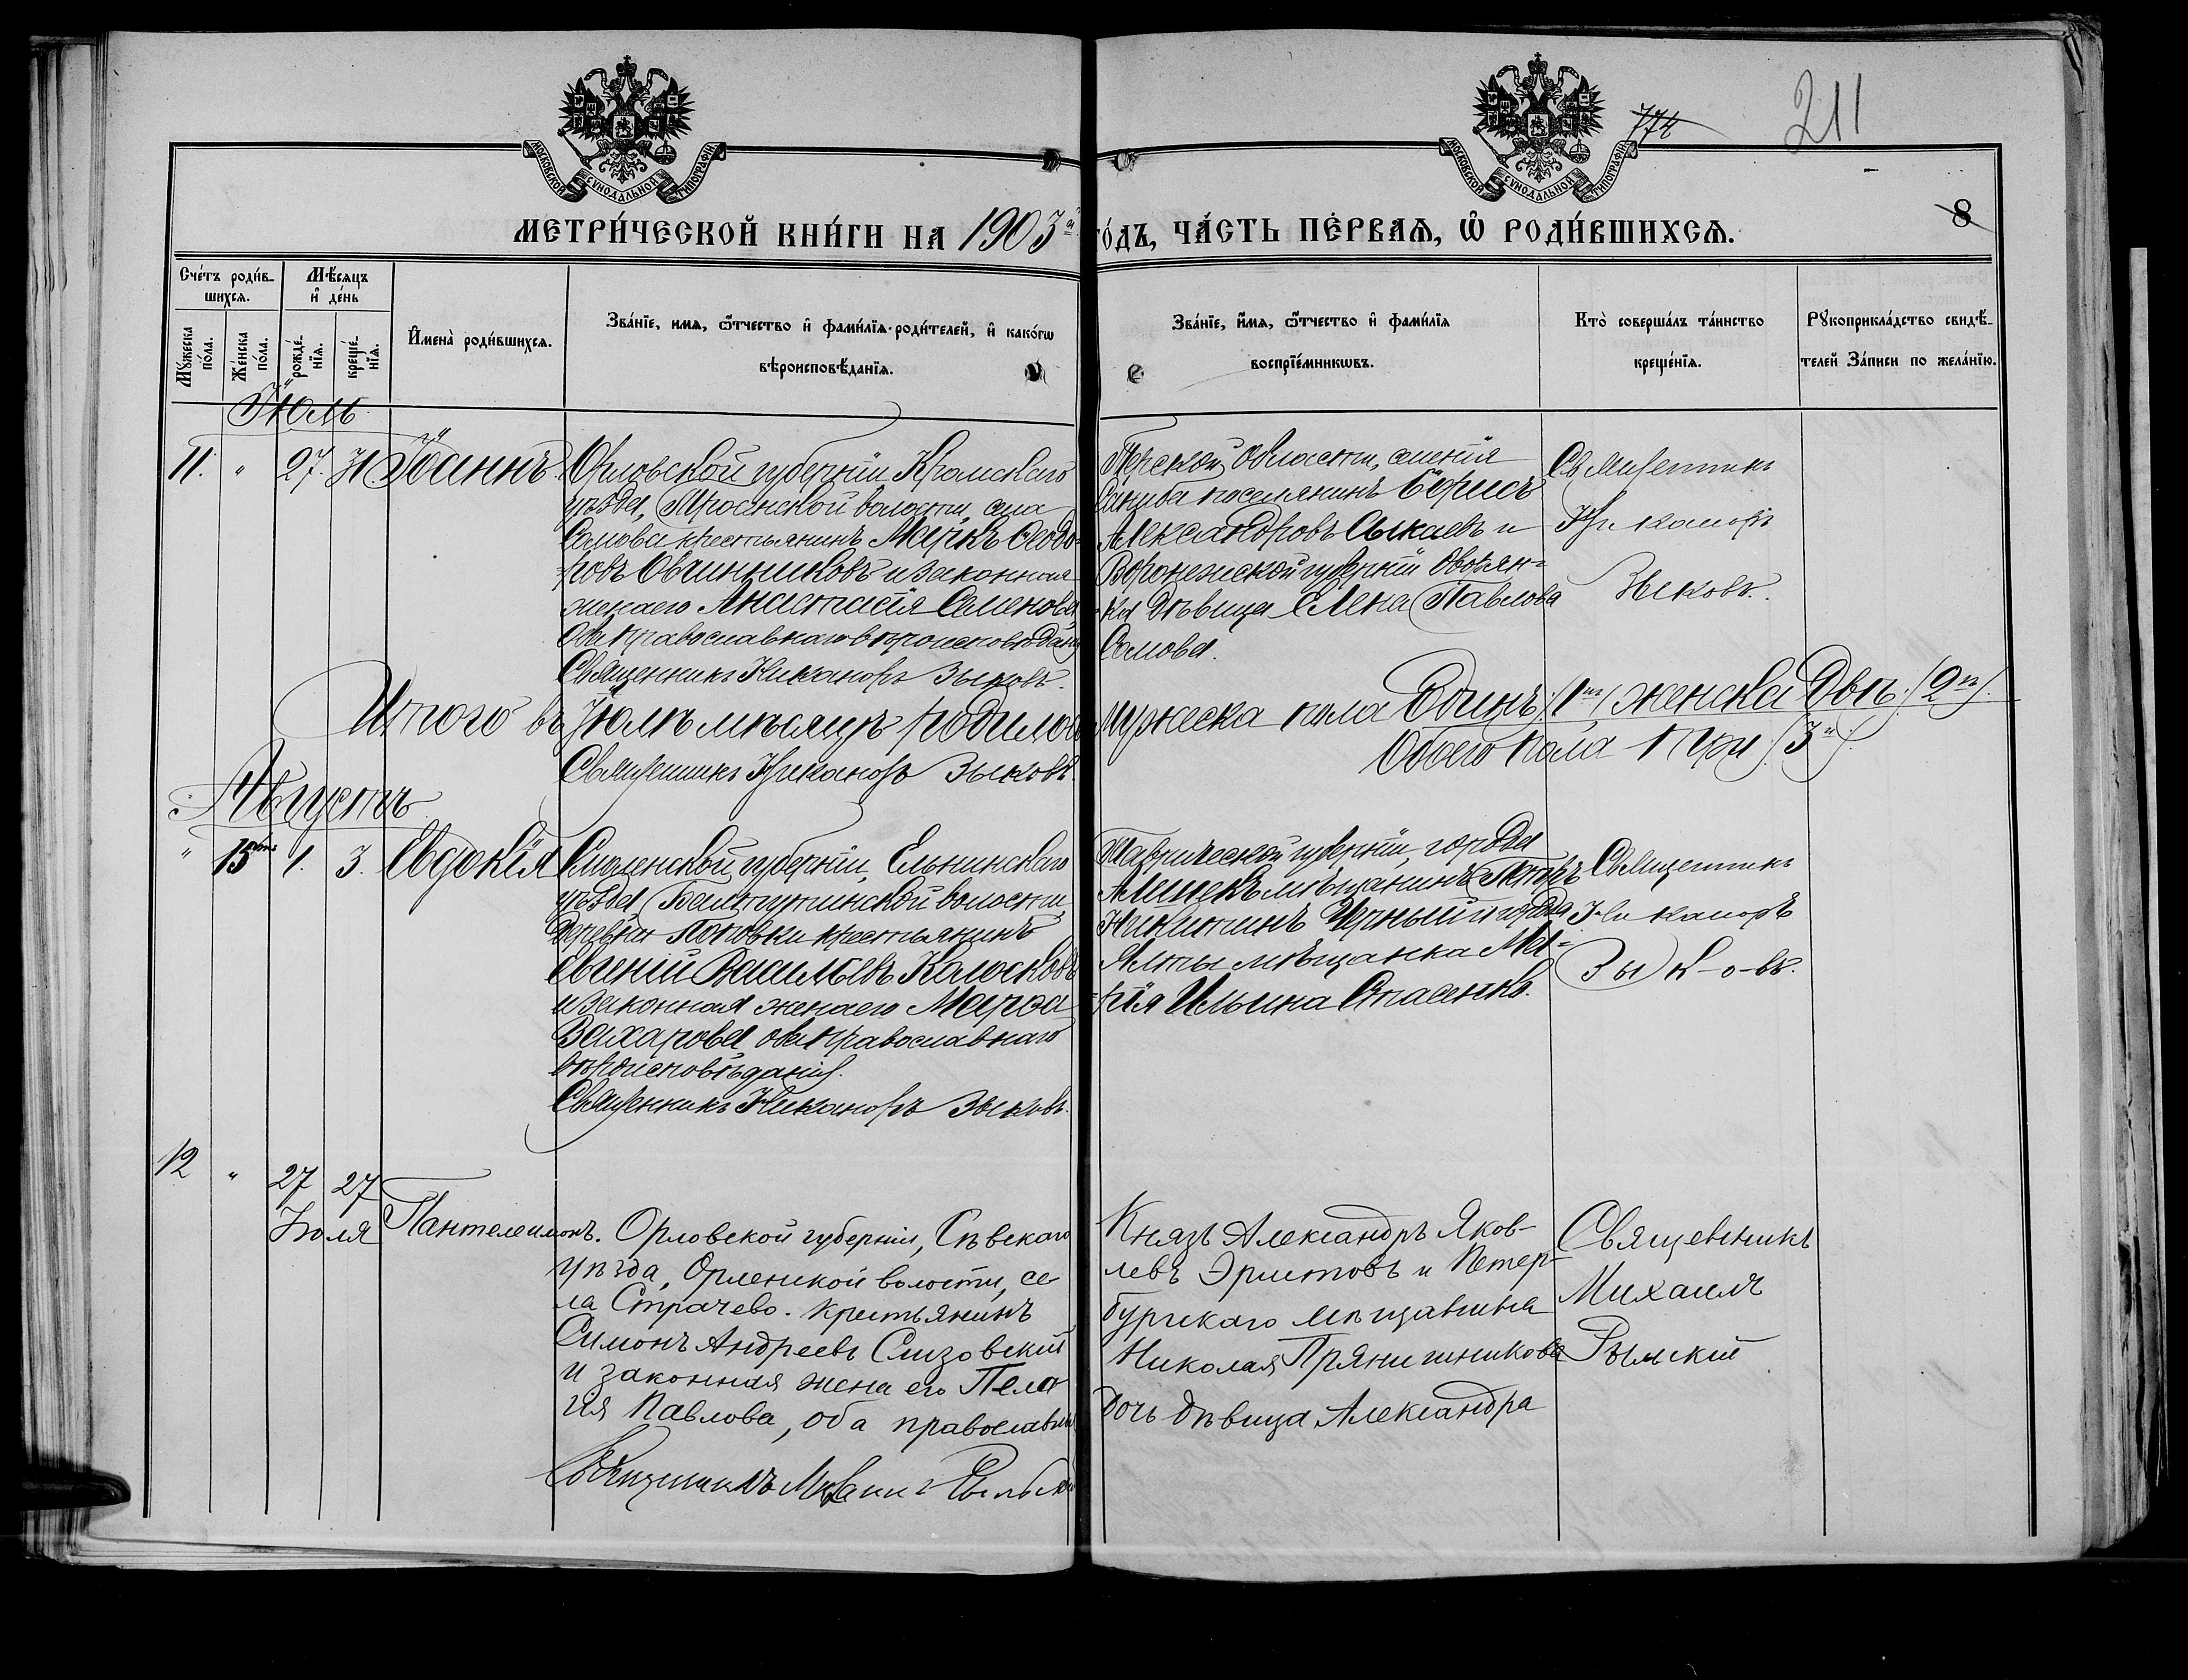 774
211
МОСКОВСКОЙ СѴНОДАЛЬНОЙ ТИПОГРАФІИ
МОСКОВСКОЙ СѴНОДАЛЬНОЙ ТИПОГРАФІИ
8
МЕТРИ́ЧЕСКОЙ КНИ́ГИ НА 1903й го́дъ, ЧА́СТЬ ПЕ́РВАѦ, Ѡ҆ РОДИ́ВШИХСѦ.
Сче́тъ роди́в-
шихсѧ.
Мѣ́сѧцъ
и҆ де́нь
Мꙋ́жеска по́ла.
Же́нска по́ла.
рожде́нїѧ.
креще́нїѧ.
И҆мена̀ роди́вшихсѧ.
Зва́нїе, имѧ, ѻ҆́тчество и҆ фами́лїѧ роди́телей, и҆ како́гѡ
вѣроисповѣ́данїѧ.
Зва́нїе, и҆́мѧ, ѻ҆́тчество и҆ фами́лїѧ
воспрїе́мникѡвъ.
Кто̀ соверша́лъ та́инство
креще́нїѧ.
Рꙋкоприкла́дство свидѣ́-
телей За́писи по жела́нїю.
Іюль
11. " 27. 31. Іоаннъ.
Орловской губерніи Кромскаго
уѣзда, волости, села
Сомова крестьянинъ Маркъ Ѳеодо-
ровъ Овчинниковъ и законная
жена его Анастасія Семенова,
оба православнаго вѣроисповѣданія
Священникъ Никаноръ Зыковъ.
Терской области, имѣнія
поселянинъ Борисъ
Александровъ и
Воронежской губерніи дворян-
ка дѣвица Елена Павлова
Сомова.
Священникъ
Никаноръ
Зыковъ.
Итого въ Іюлѣ мѣсяцѣ родилось мужеска пола Одинъ (1нъ), женска Двѣ (2ѣ).
Обоего пола три (3и).
Священникъ Никаноръ Зыковъ
Августъ
" 15 1. 3. Евдокія
Смоленской губерніи, Ельнинскаго
уѣзда, Балтутинской волости,
деревни Поповки крестьянинъ
Евгеній Васильевъ Колосковъ
и законная жена его Марѳа
Захарова, оба православнаго
вѣроисповѣданія.
Священникъ Никаноръ Зыковъ.
Таврической губерніи, города
Алешекъ мѣщанинъ Петръ
Никитинъ Черный и города
Ялты мѣщанка Ма-
рія Ильина Спасенко.
Священникъ
Никаноръ
Зыковъ.
12 " 27 27
Іюля
Пантелеимонъ.
Орловской губерніи, Сѣвскаго
уѣзда, Орлинской волости, се-
ла Страчево. крестьянинъ
Симонъ Андреевъ Слизовский
и законная жена его Пела-
гія Павлова, оба православны
Священникъ Михаилъ Рыльскій
Князь Александръ Яков-
левъ Эристовъ и Петер-
бургскаго мѣщанина
Николая Прянишникова
дочь дѣвица Александра
Священникъ
Михаилъ
Рыльскій